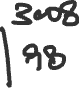 3008
98